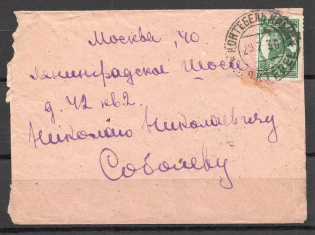 Москва, 40.
Ленинградское шоссе
д. 42 кв. 2.
Николаю Николаевичу
Соболеву
КОКТЕБЕЛЬ